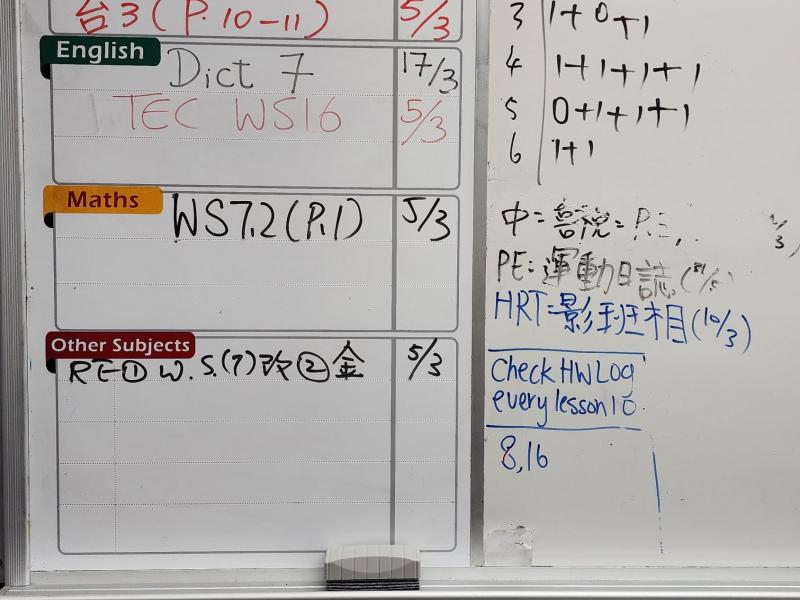 台3 (P.10-11) 5/3
English
Dict 7 17/3
TEC WS16 5/3
Maths
WS7.2 (P.1) 5/3
Other Subjects
RE① W.S.(7)改②金 5/3
3 1+0+1
4 1+1+1+1
5 0+1+1+1
6 1+1
中=
PE:運動日誌
HRT=影班相(10/3)
Check HW Log
every lesson 10
8,16